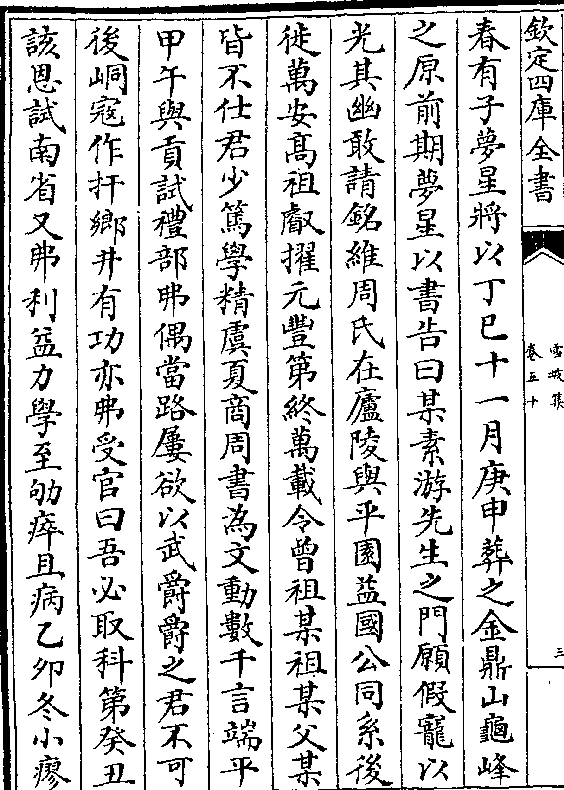 欽定四庫全書
雪坡集
卷五十
三
春有子夢星將以丁巳十一月庚申葬之金鼎山龜峰
之原前期夢星以書告曰某素游先生之門願假寵以
光其幽敢請銘維周氏在廬陵與平園益國公同系後
徙萬安髙祖叡擢元豐第終萬載令曾祖某祖某父某
皆不仕君少篤學精虞夏商周書為文動數千言端平
甲午與貢試禮部弗偶當路屢欲以武爵爵之君不可
後峒宼作扞鄉井有功亦弗受官曰吾必取科第癸丑
該恩試南省又弗利益力學至劬瘁且病乙卯冬小瘳